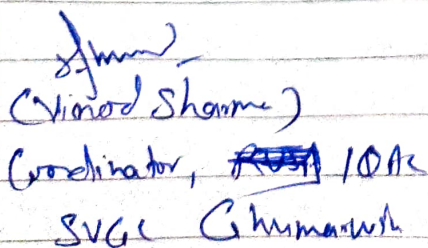 (Vinod Sharma)
Coordinator, IQAC
SVGC Ghumarwin